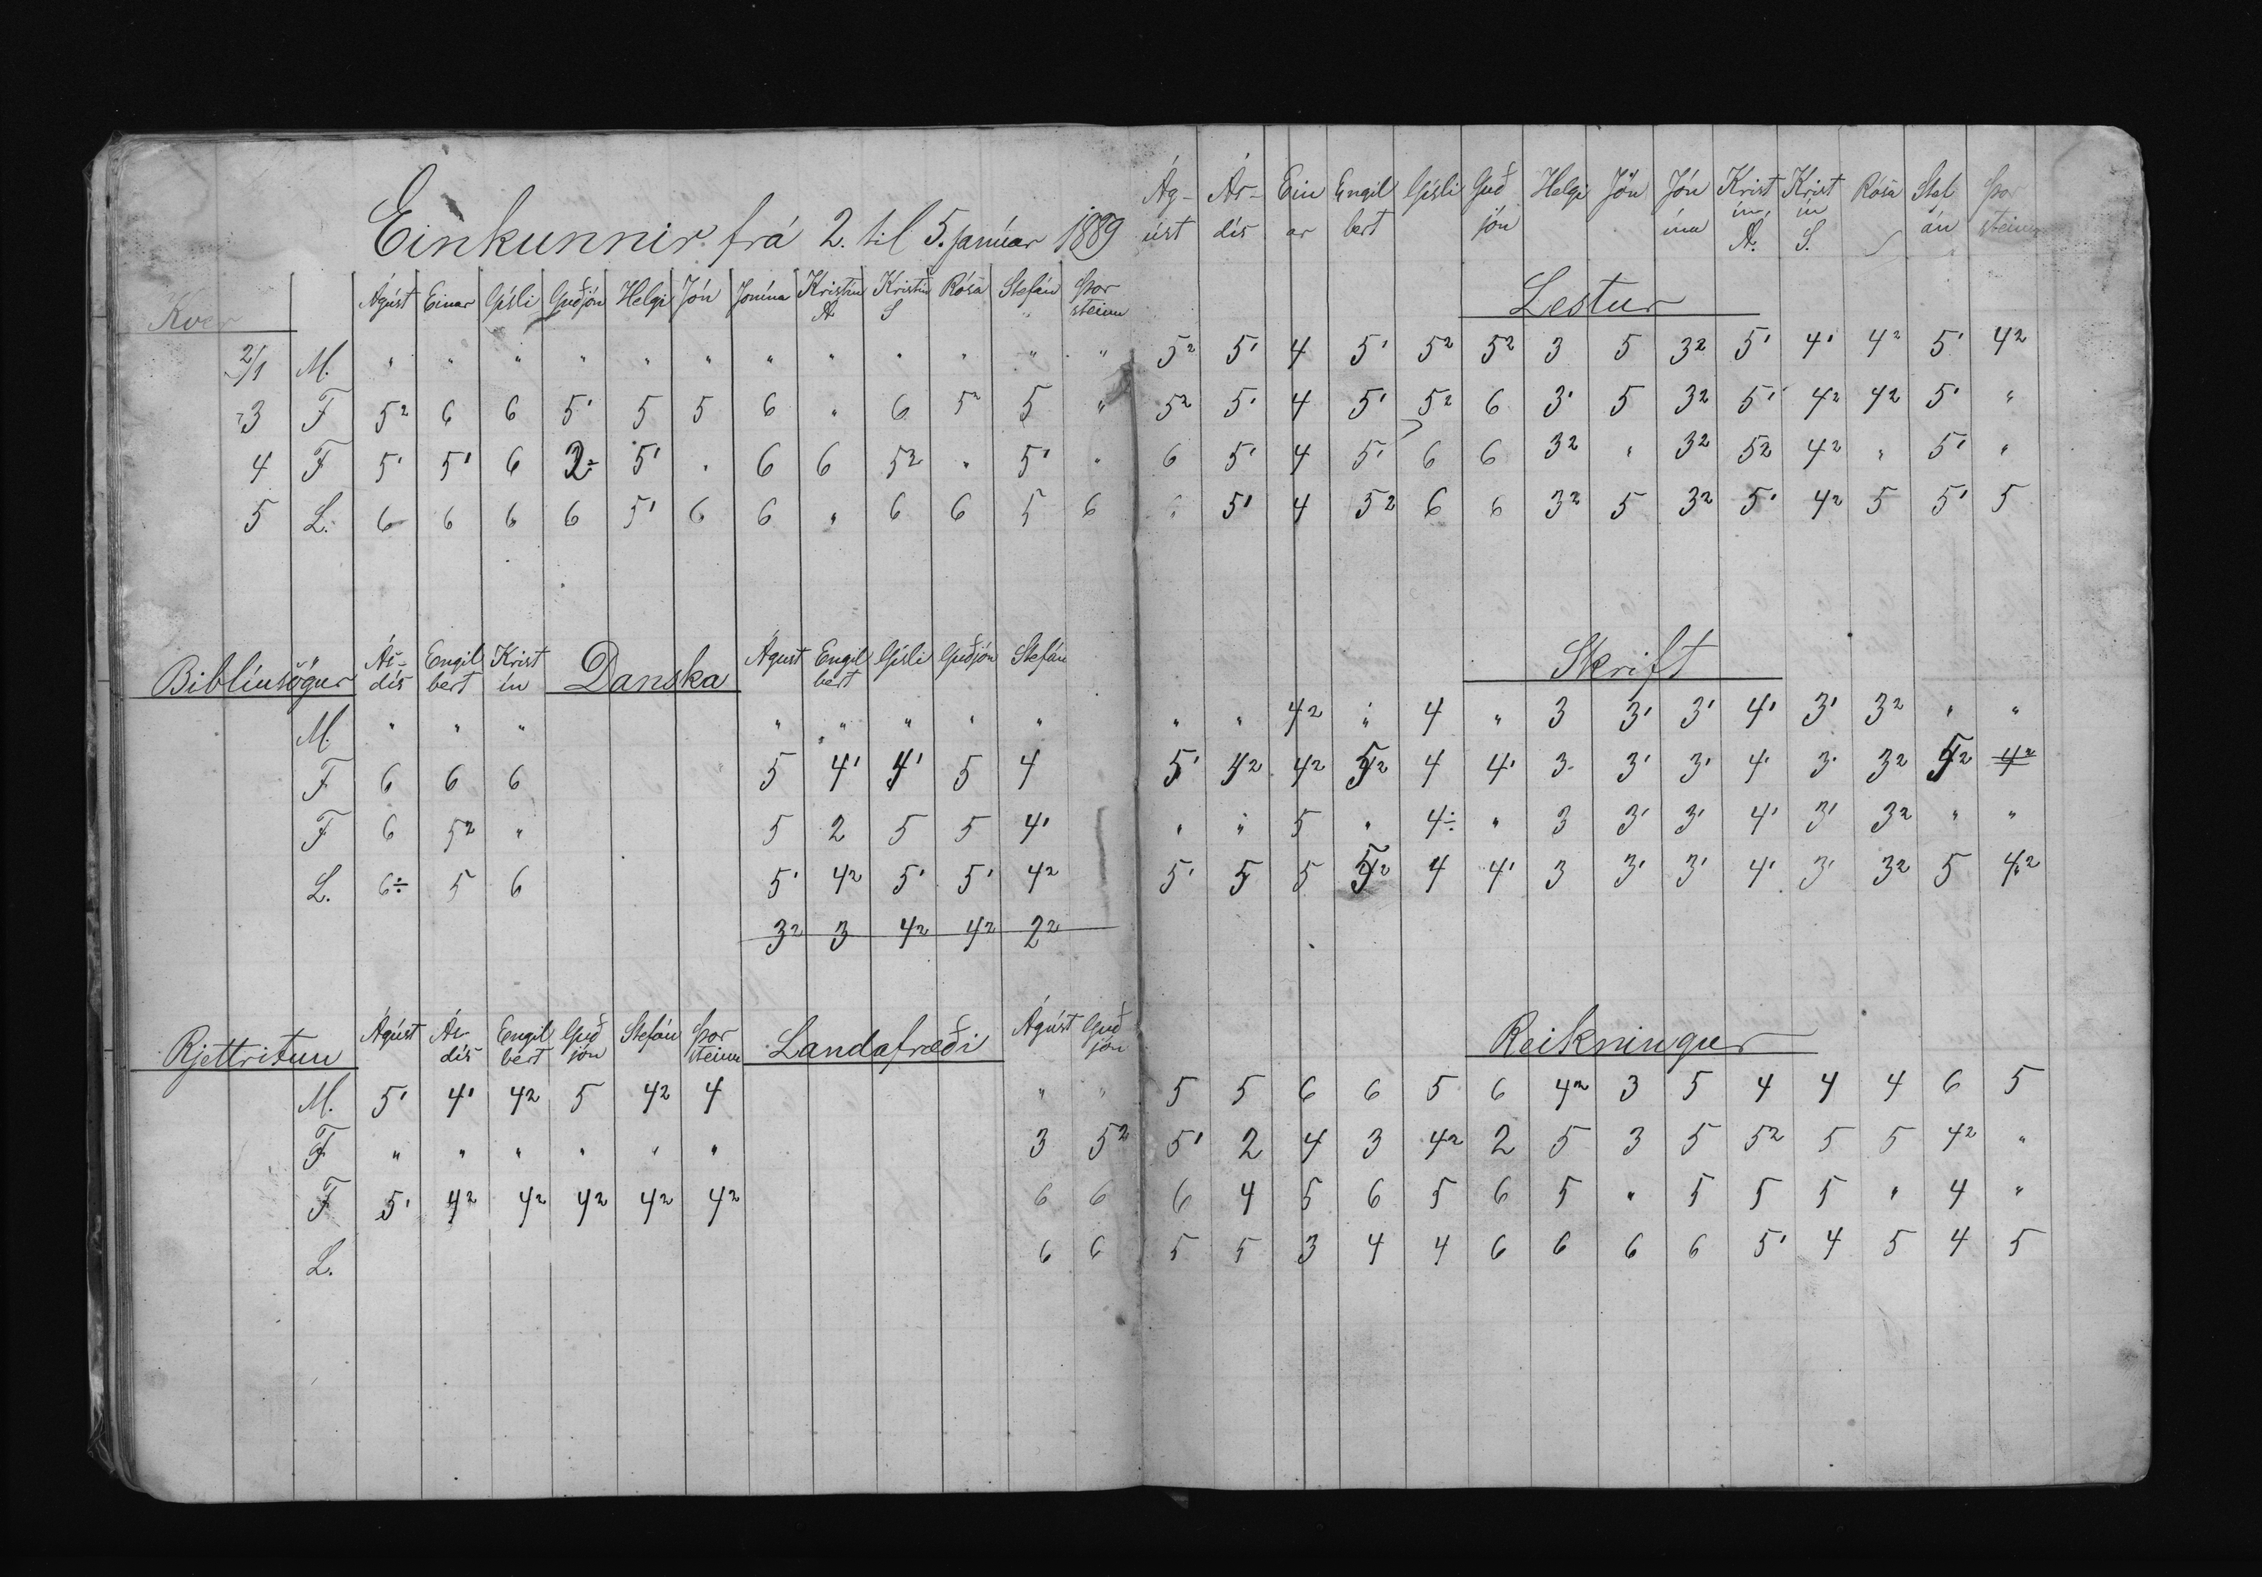 Einkunnir frá 2. til 5. janúar 1889
Kver Ágúst Einar Gísli Guðjón Helgi Jón Jonína Kristín A Kristín S Rósa Stefán Þorsteinn
2/1 M. " " " " " " " " " " " "
3 F 5² 6 6 5' 5 5 6 " 6 5² 5 "
4 F 5' 5' 6 2÷ 5' " 6 6 5² " 5' "
5 L. 6 6 6 6 5' 6 6 " 6 6 5 6
Biblíusögur Ár-dís Engilbert Kristín Danska Ágúst Engilbert Gísli Guðjón Stefán
M. " " " " " " " "
F 6 6 6 5 4' 4' 5 4
F 6 5² " 5 2 5 5 4'
L. 6÷ 5 6 5' 4² 5' 5' 4²
3² 3 4² 4² 2²
Rjettritun Ágúst Árdís Engilbert Guðjón Stefán Þorsteinn Landafræði Ágúst Guðjón
M. 5' 4' 4² 5 4² 4 " "
F " " " " " " 3 5²
F 5' 4² 4² 4² 4² 4² 6 6
L. 6 6
Ág-úst Ár-dís Einar Engilbert Gísli Guðjón Helgi Jón Jónína Kristín A. Kristín S. Rósa Stefán Þorsteinn
Lestur
5² 5' 4 5' 5² 5² 3 5 3² 5' 4' 4² 5' 4²
5² 5' 4 5' 5² 6 3' 5 3² 5' 4² 4² 5' "
6 5' 4 5' 6 6 3² " 3² 5² 4² " 5' "
6 5' 4 5² 6 6 3² 5 3² 5' 4² 5 5' 5
Skrift
" " 4² " 4 " 3 3' 3' 4' 3' 3² " "
5' 4² 4² 5² 4 4' 3 3' 3' 4' 3' 3² 5² 4²
" " 5 " 4÷ " 3 3' 3' 4' 3' 3² " "
5' 5 5 5² 4 4' 3 3' 3' 4' 3' 3² 5 4²
Reikningur
5 5 6 6 5 6 4² 3 5 4 4 4 6 5
5' 2 4 3 4² 2 5 3 5 5² 5 5 4² "
6 4 5 6 5 6 5 " 5 5 5 " 4 "
5 5 3 4 4 6 6 6 6 5' 4 5 4 5